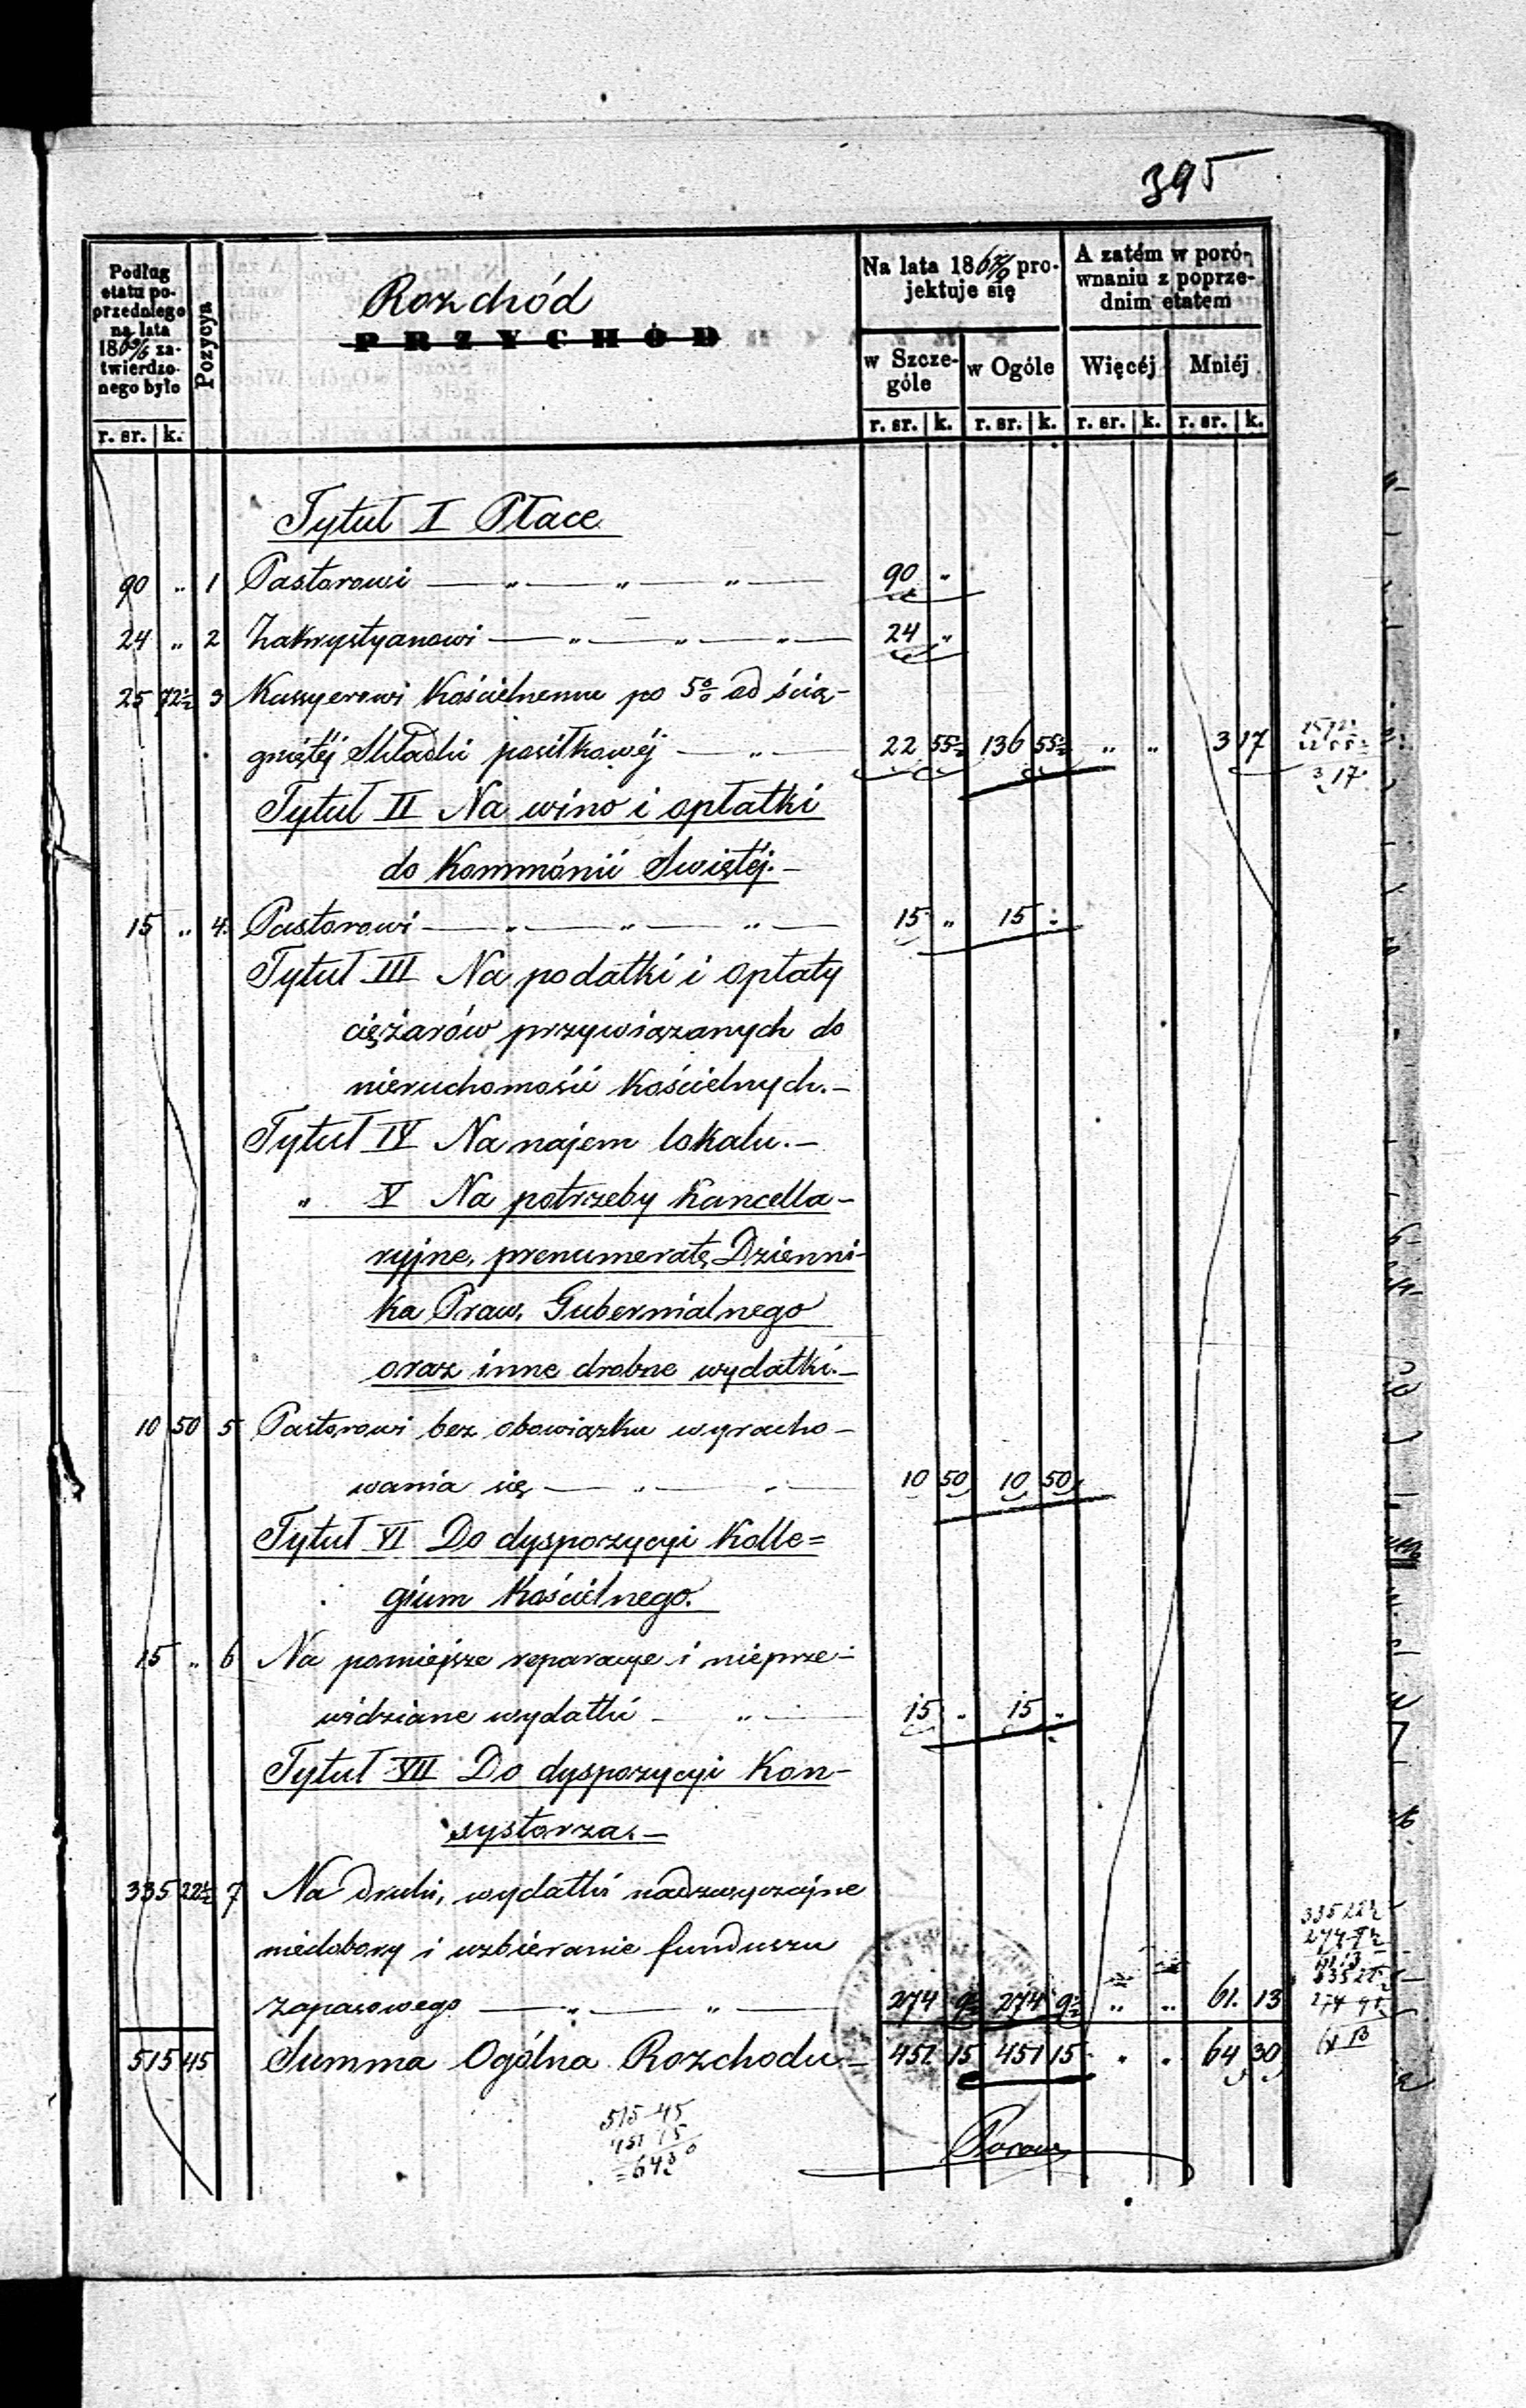 395
Podług etatu poprzedniego na lata 18 zatwierdzonego było
Pozycya
Rozchód
PRZYCHÓD
Na lata 18 projektuje się
A zatém w porównaniu z poprzednim etatem
w Szczególe
w Ogóle
Więcéj
Mniéj
r. sr. k. r. sr. k. r. sr. k. r. sr. k. r. sr. k.
Tytuł I Płace
90 " 1 Pastorowi — " — " — " — 90 "
24 " 2 Zakrystyanowi — " — " — " — 24 "
25 72½ 3 Kassyerowi Kościelnemu po 5% od ścią-
gniętéj Składki posiłkowéj — " — 22 55½ 136 55½ " " 3 17
3 17
Tytuł II Na wino i opłatki
do Kommónii Swiętéj.-
15 " 4. Pastorowi — " — " — " — 15 " 15 "
Tytuł III Na podatki i opłaty
ciężarów przywiązanych do
nieruchomości Kościelnych.-
Tytuł IV Na najem lokalu.-
" V Na potrzeby Kancella-
ryjne, prenumeratę Dzienni-
ka Praw, Gubernialnego
oraz inne drobne wydatki.-
10 50 5 Pastorowi bez obowiązku wyracho-
wania się — " — " — 10 50 10 50
Tytuł VI Do dyspozycyi Kolle=
gium Kościelnego.
15 " 6 Na pomiejsze reparacye i nieprze-
widziane wydatki — " — 15 " 15 "
Tytuł VII Do dyspozycyi Kon-
systorza.-
335 22½ 7 Na druki, wydatki nadzwyczajne
niedobory i uzbieranie funduszu
zapasowego — " — " — 274 9½ 274 9½ " " 61. 13
515 45 Summa Ogólna Rozchodu.- 451 15 451 15 " " 64 30
515 45
451 15
=64 30